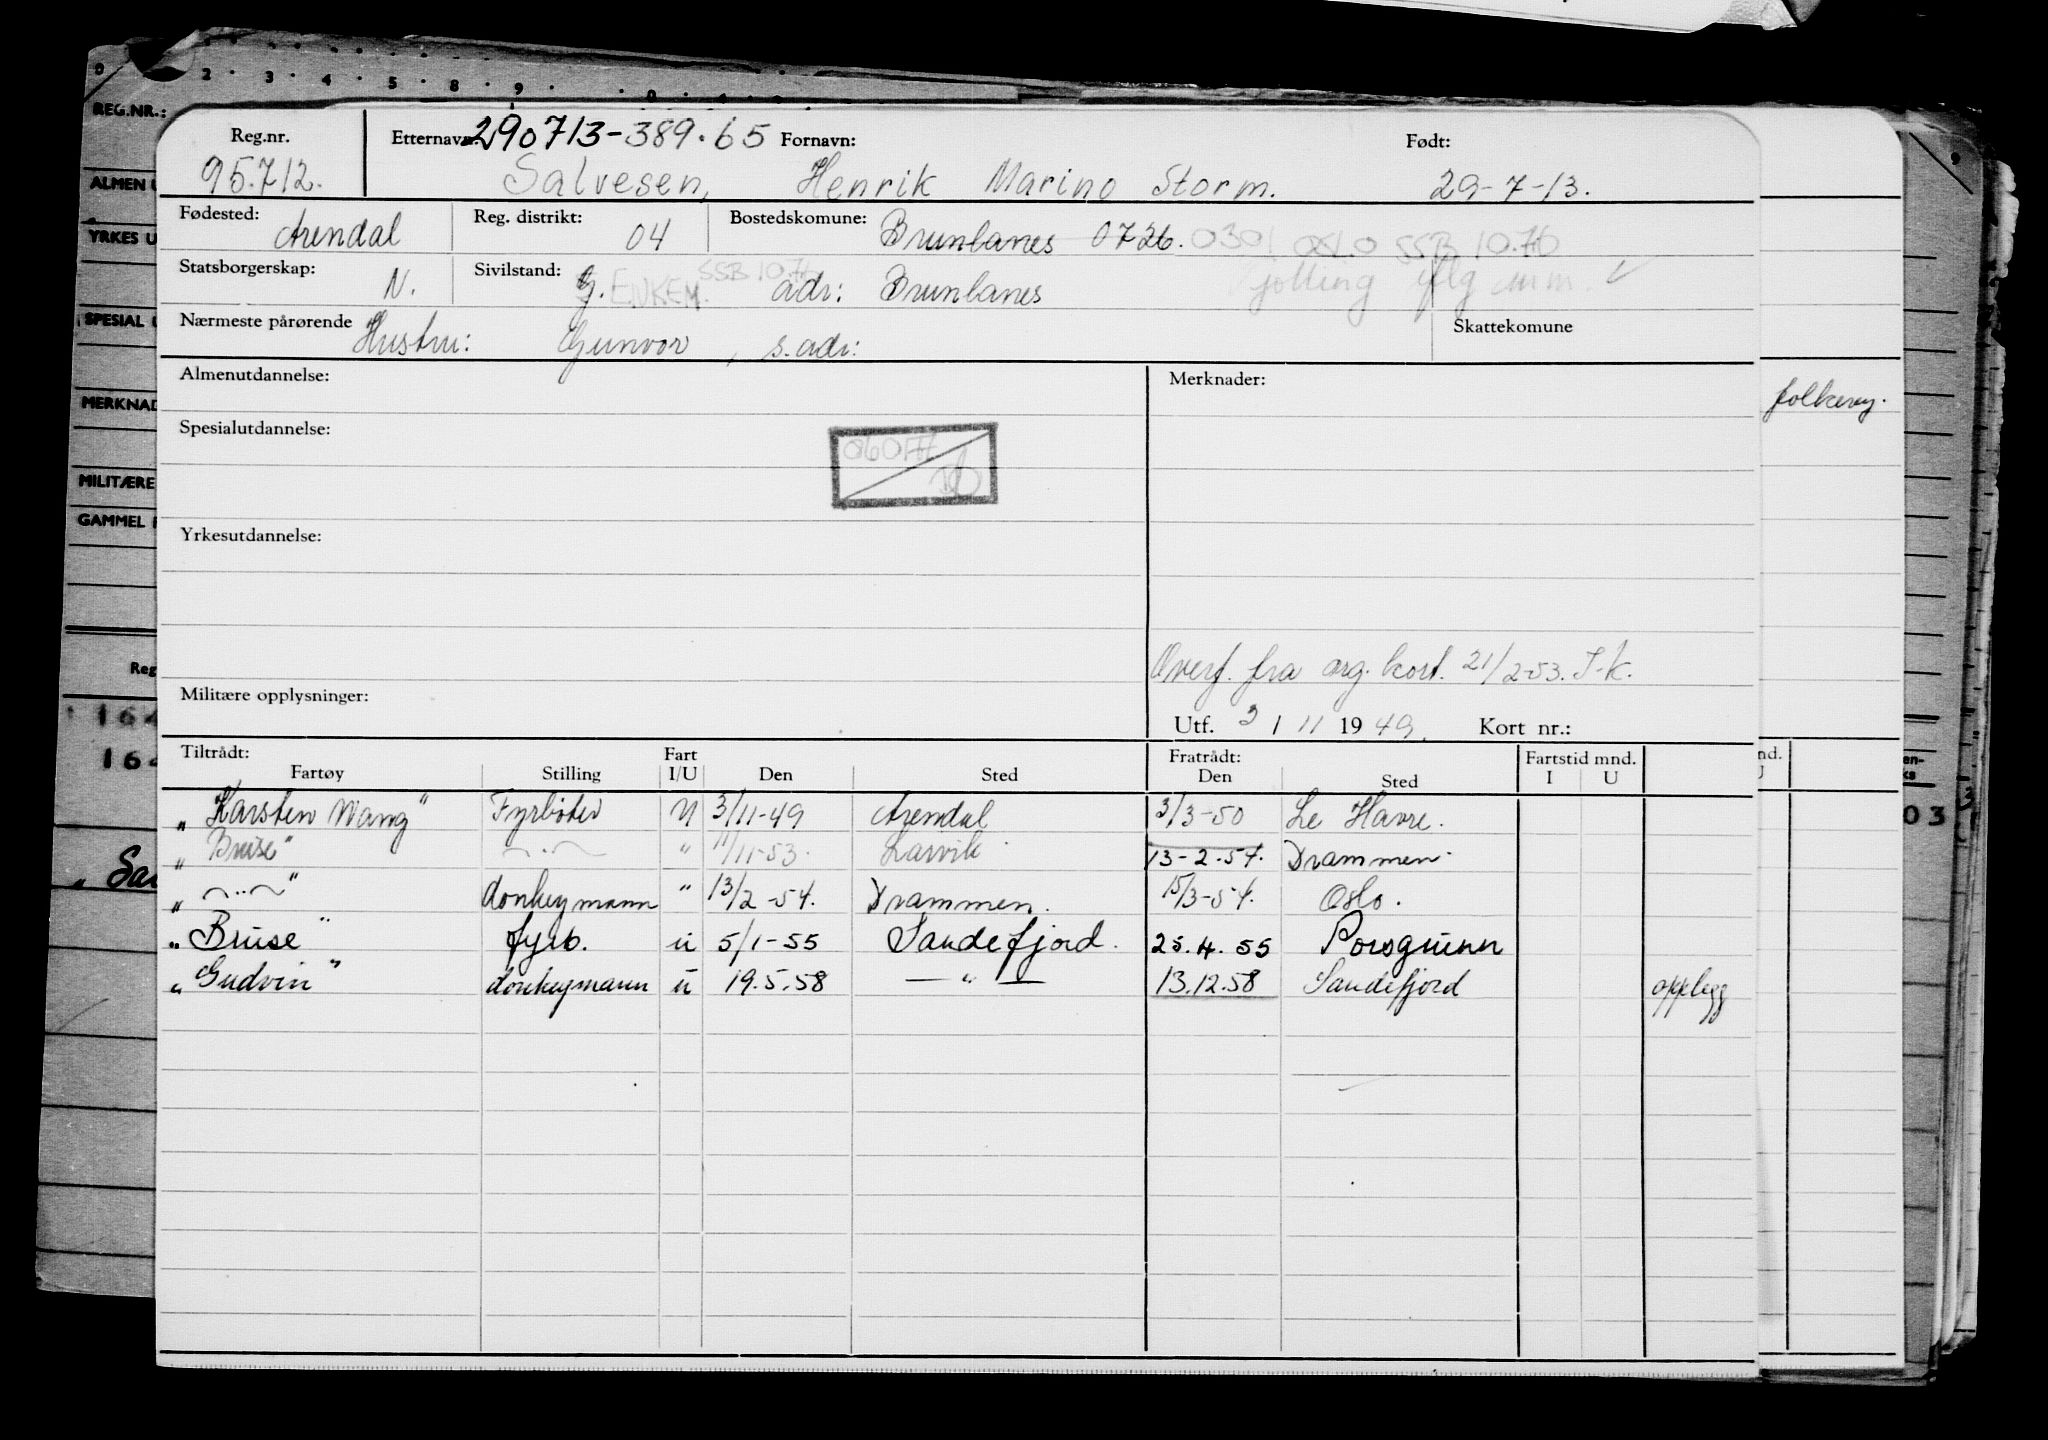 0 2 3 4 5 8 9 0 4
REG.NR.:
Reg.nr. Etternavn: 290713-389.65 Fornavn: Født:
95.712. Salvesen, Henrik Marino Storm. 29-7-13.
ALMEN U
Fødested: Arendal Reg. distrikt: 04 Bostedskomune: Brunlanes 0726. 0301 OSLO SSB 10.76
YRKES U
Statsborgerskap: N. Sivilstand: G. ENKEM. SSB 10.76 adr: Brunlanes Tjølling iflg mm.
SPESIAL U
Nærmeste pårørende Hustru: Gunvor, s. adr: Skattekomune
Almenutdannelse: Merknader:
MERKNAD
Spesialutdannelse:
MILITÆRE
GAMMEL
Yrkesutdannelse:
Overf. fra org. kort. 21/2-53. J-k.
Reg
Militære opplysninger:
Utf. 3 / 11 19 49. Kort nr.:
164
164
Tiltrådt: Fart Fratrådt: Fartstid mnd. nd.
Fartøy Stilling I/U Den Sted Den Sted I U
„Karsten Wang" Fyrbøter U 3/11-49 Arendal 3/3-50 Le Havre.
„Bruse" —"— " 11/11-53. Larvik 13-2-54. Drammen.
„—"—" donkeymann " 13/2-54. Drammen. 15/3-54. Oslo.
„Bruse" fyrb. u 5/1-55 Sandefjord. 25.4.55 Porsgrunn
„Gudvin" donkeymann u 19.5.58 —"— 13.12.58 Sandefjord opplegg